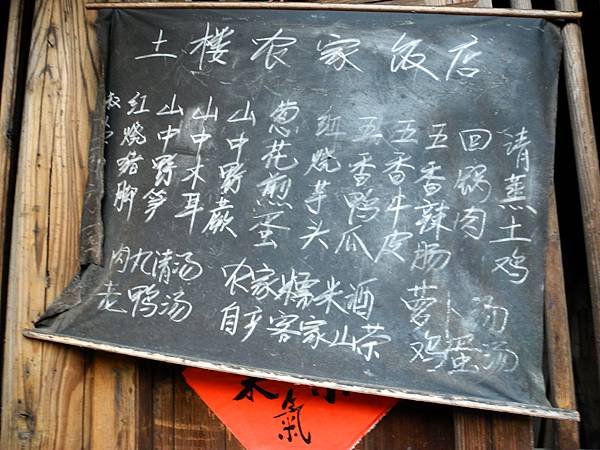 土楼农家饭店
清蒸土鸡
回锅肉
五香辣肠
五香牛皮
五香鸭瓜
红烧芋头
葱花煎蛋
山中野蕨
山中木耳
山中野笋
红烧猪脚
萝卜汤
鸡蛋汤
农家糯米酒
自产客家山茶
肉丸清汤
老鸭汤
氣